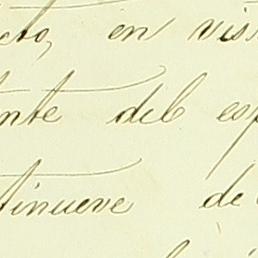 cto, en vis
nte del esp
tinueve de